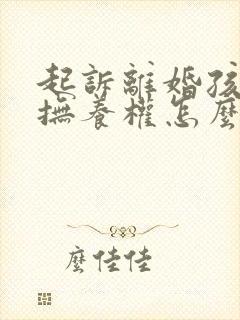 起訴離婚孩
撫養權怎麼
麼佳佳